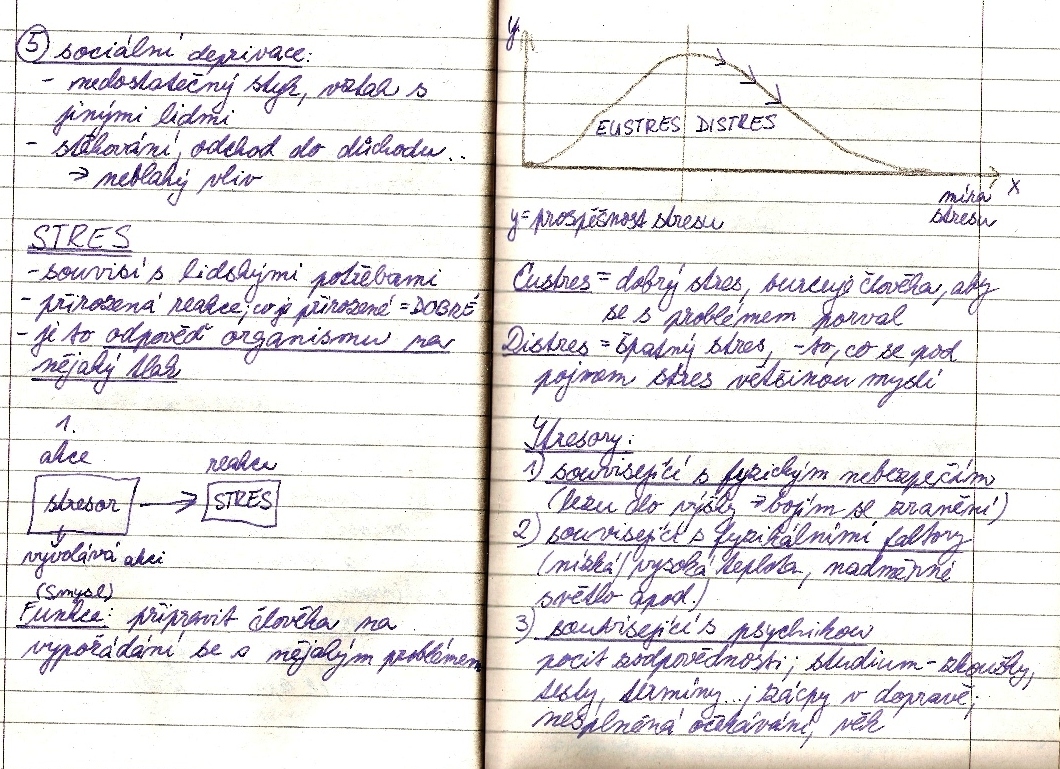 5 sociální deprivace:
- nedostatečný styk, vztah s
jinými lidmi
- stěhování, odchod do důchodu..
→ neblahý vliv
STRES
- souvisí s lidskými potřebami
- přirozená reakce; co je přirozené = DOBRÉ
- je to odpověď organismu na
nějaký tlak
1.
akce
reakce
stresor → STRES
vyvolává akci
(Smysl)
Funkce: připravit člověka na
vypořádání se s nějakým problémem
y
EUSTRES DISTRES
x
míra
stresu
y = prospěšnost stresu
Eustres = dobrý stres, burcuje člověka, aby
se s problémem porval
Distres = špatný stres, - to, co se pod
pojmem stres většinou myslí
Stresory:
1) související s fyzickým nebezpečím
(lezu do výšky → bojím se zranění)
2) související s fyzikálními faktory
(nízká/vysoká teplota, nadměrné
světlo apod.)
3) související s psychikou
pocit zodpovědnosti; studium - zkoušky,
testy, termíny..; zácpy v dopravě;
nesplněná očekávání, věk